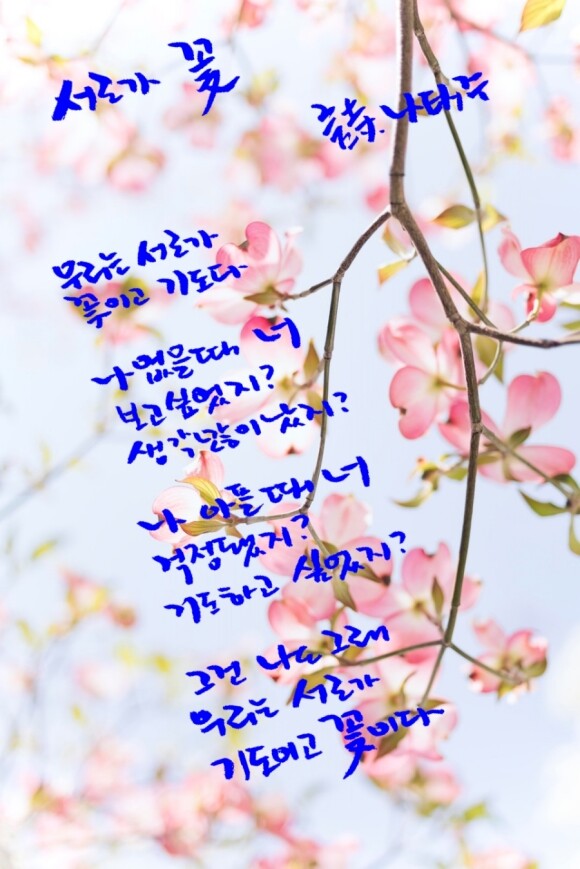 서로가 꽃
글 詩. 나태주
우리는 서로가
꽃이고 기도다
나 없을 때 너
보고 싶었지?
생각 많이 났지?
나 아플 때 너
걱정됐었지?
기도하고 싶었지?
그건 나도 그래
우리는 서로가
기도이고 꽃이다